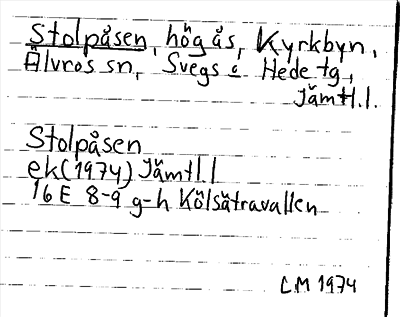 Stolpåsen, hög ås, Kyrkbyn,
Älvros sn, Svegs o Hede tg,
Jämtl.l.
Stolpåsen
ek(1974) Jämtl.l
16 E 8-9 g-h Kölsätravallen
LM 1974